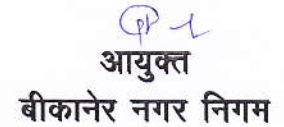 आयुक्त
बीकानेर नगर निगम